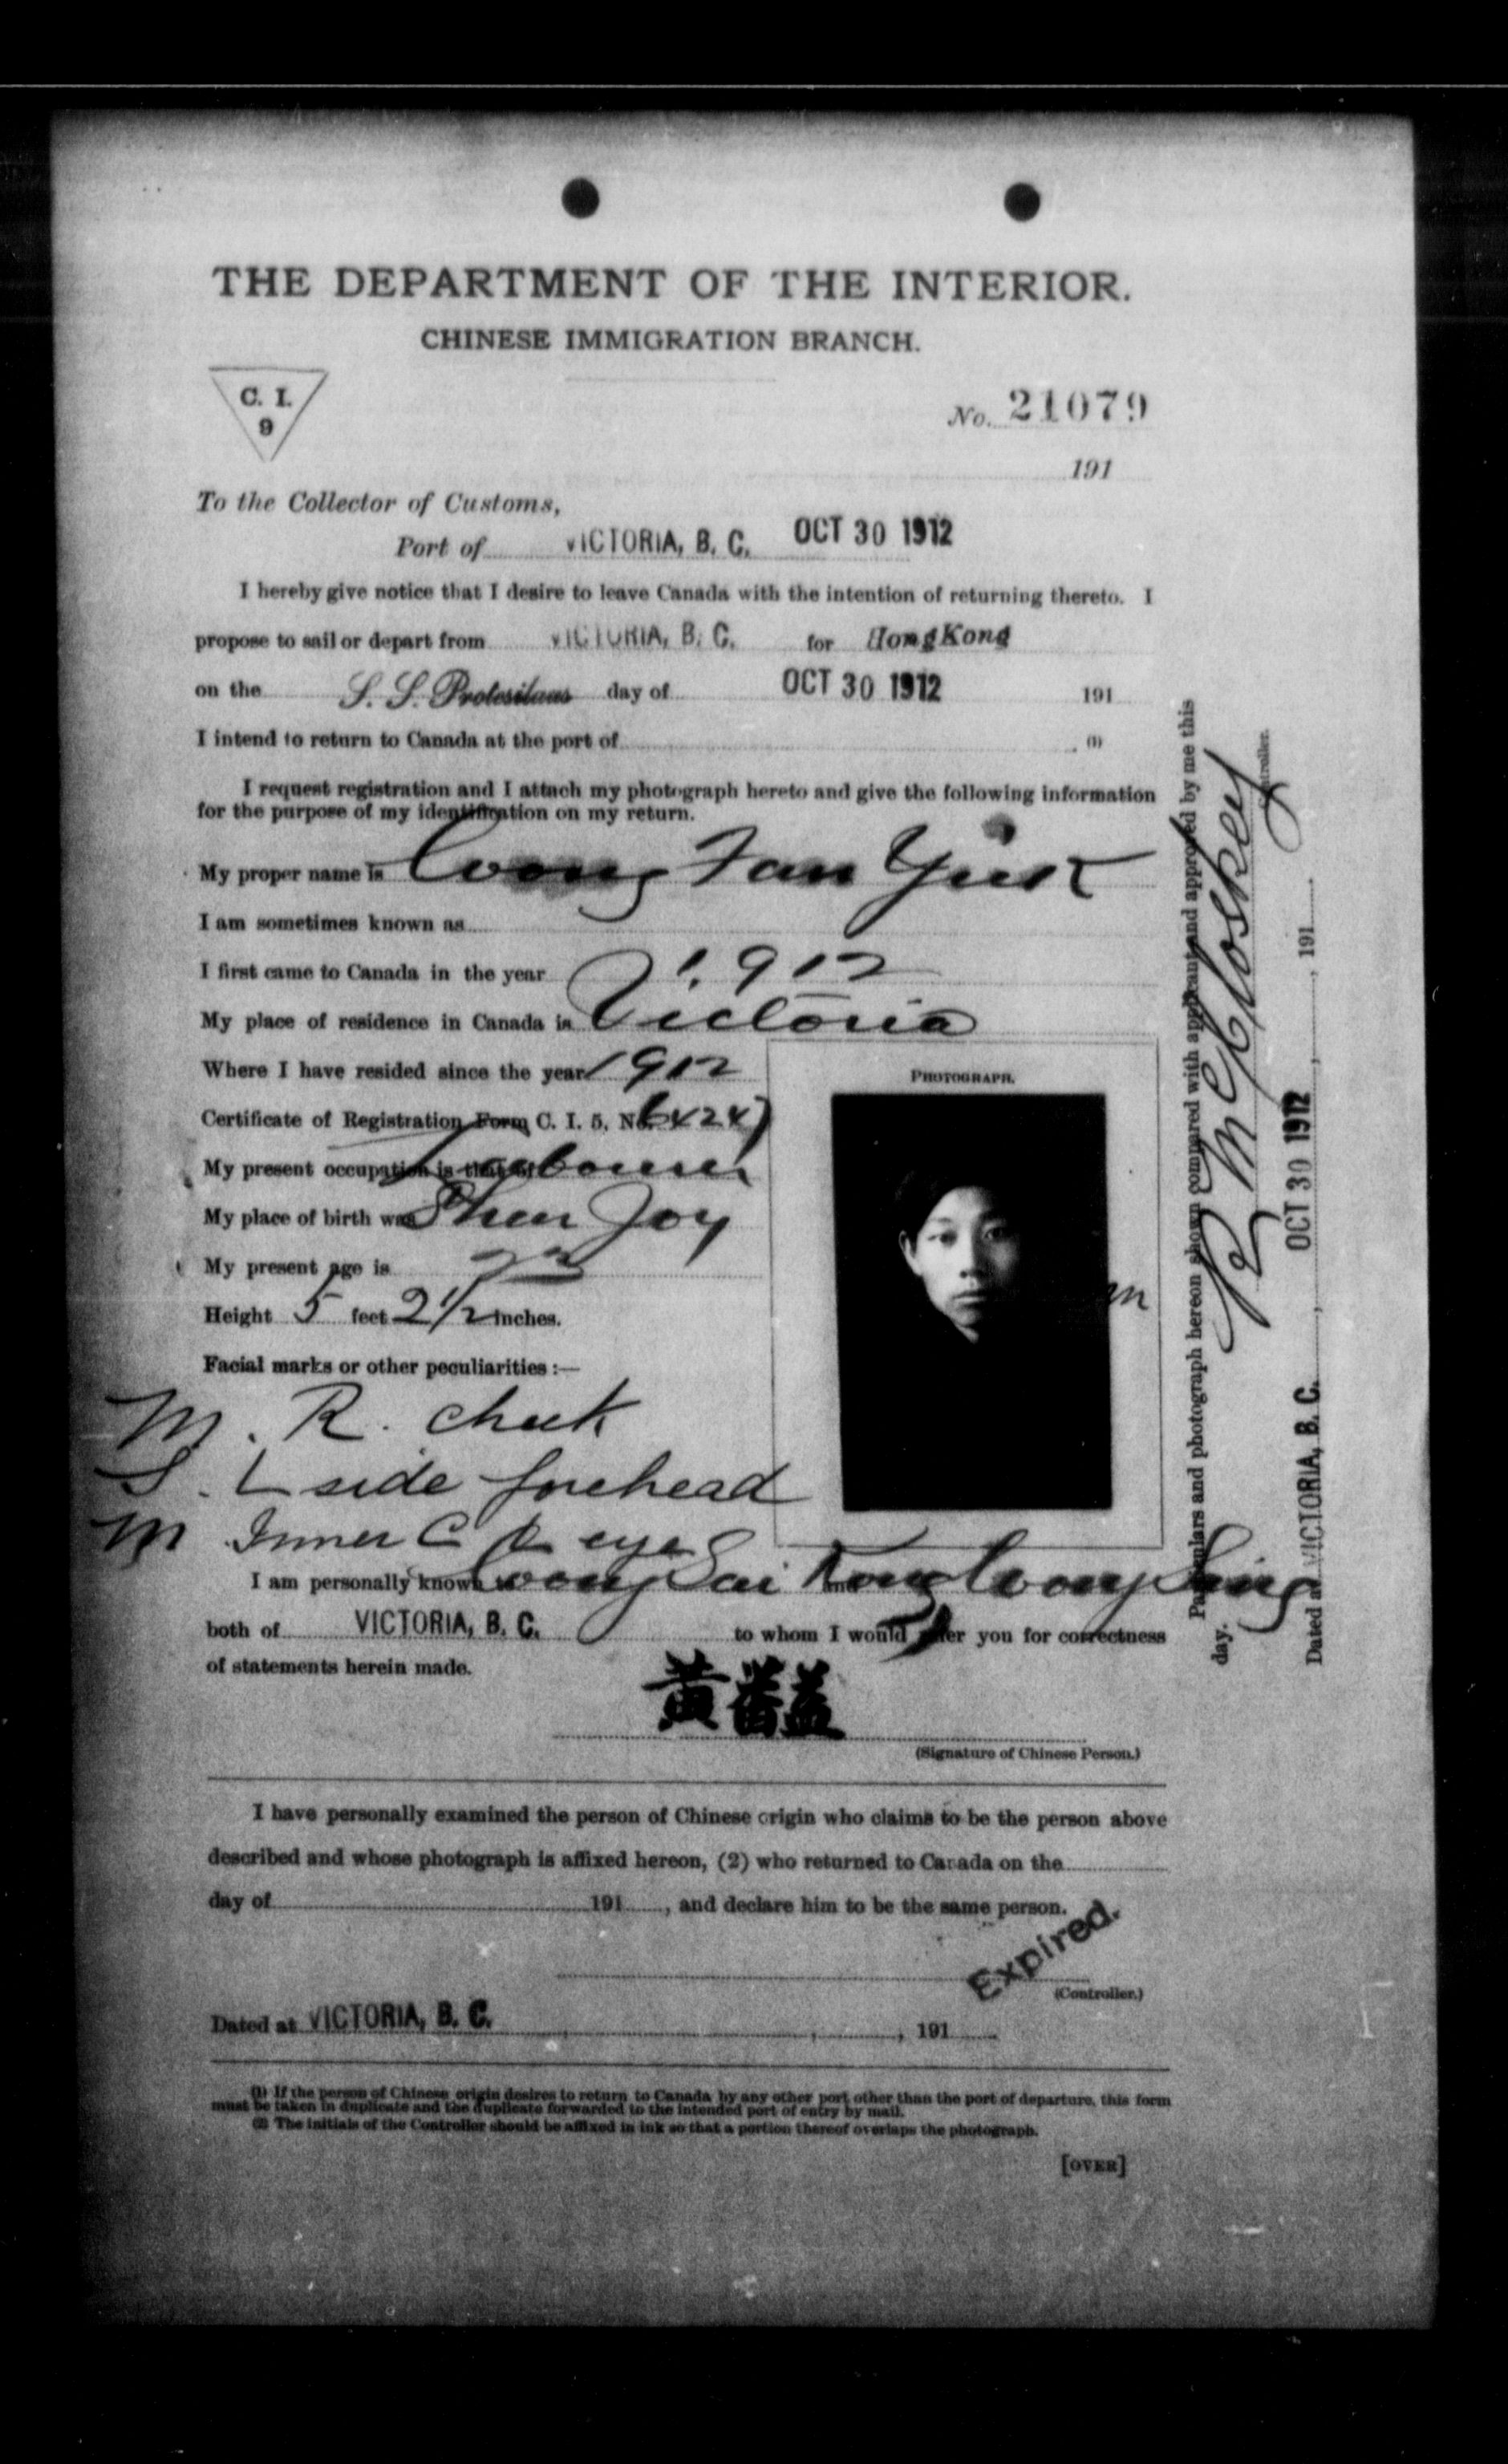 THE DEPARTMENT OF THE INTERIOR.
CHINESE IMMIGRATION BRANCH.
C. I.
9
No. 21079
191
To the Collector of Customs,
Port of VICTORIA, B. C. OCT 30 1912
I hereby give notice that I desire to leave Canada with the intention of returning thereto. I
propose to sail or depart from VICTORIA, B. C. for HongKong
on the S. S. Protesilaus day of OCT 30 1912 191
I intend to return to Canada at the port of (1)
I request registration and I attach my photograph hereto and give the following information
for the purpose of my identification on my return.
My proper name is Wong Fan Yuk
I am sometimes known as
I first came to Canada in the year 1912
My place of residence in Canada is Victoria
Where I have resided since the year 1912
Certificate of Registration Form C. I. 5, No.
My present occupation is that of Labourer
My place of birth was Shen Joy
My present age is 23
Height 5 feet 2 1/2 inches.
Facial marks or other peculiarities :—
M. R. cheek
S. L side forehead
M Inner C R eye
PHOTOGRAPH.
I am personally known to Wong Sai Kong Wong Sing
both of VICTORIA, B. C. to whom I would refer you for correctness
of statements herein made.
黃蕃益
(Signature of Chinese Person.)
I have personally examined the person of Chinese origin who claims to be the person above
described and whose photograph is affixed hereon, (2) who returned to Canada on the
day of 191 , and declare him to be the same person.
Expired.
(Controller.)
Dated at VICTORIA, B. C. , , 191
(1) If the person of Chinese origin desires to return to Canada by any other port other than the port of departure, this form
must be taken in duplicate and the duplicate forwarded to the intended port of entry by mail.
(2) The initials of the Controller should be affixed in ink so that a portion thereof overlaps the photograph.
[OVER]
Particulars and photograph hereon shown compared with applicant and approved by me this
day.
McCloskey
Controller.
Dated at VICTORIA, B. C. , OCT 30 1912 , , 191